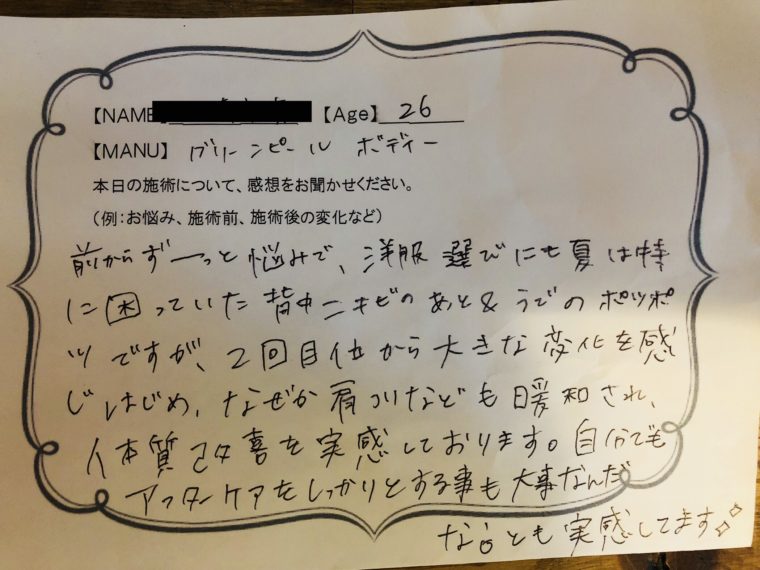 【NAME】【Age】 26
【MANU】 グリーンピール ボディー
本日の施術について、感想をお聞かせください。
（例：お悩み、施術前、施術後の変化など）
前からず一っと悩みで、洋服選びにも夏は特
に困っていた背中ニキビのあと＆うでのポツポ
ツですが、2回目位から大きな変化を感
じはじめ、なぜか肩コリなども暖和され、
体質改善を実感しております。自分でも
アフターケアをしっかりとする事も大事なんだ
な。とも実感してます